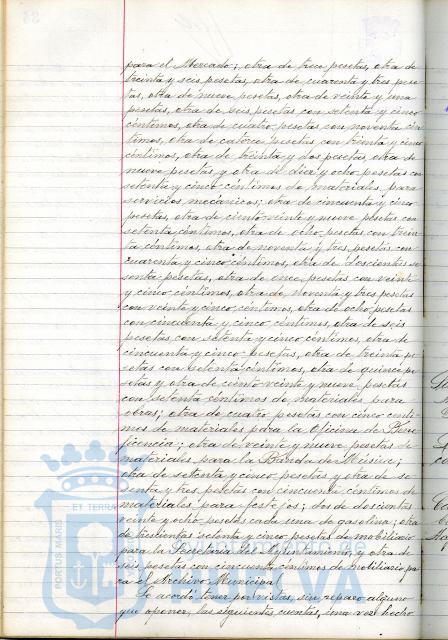 para el Mercado; otra de trece pesetas, otra de
treinta y seis pesetas, otra de cuarenta y tres pese
tas, otra de nueve pesetas, otra de veinte y una
pesetas, otra de seis pesetas con setenta y cinco
céntimos, otra de cuatro pesetas con noventa cén
timos, otra de catorce pesetas con treinta y cinco
céntimos, otra de treinta y dos pesetas otra de
nueve pesetas y otra de diez y ocho pesetas con
setenta y cinco céntimos de materiales, para
servicios mecánicos; otra de cincuenta y cinco
pesetas, otra de ciento veinte y nueve pesetas con
setenta céntimos, otra de ocho pesetas con trein
ta céntimos, otra de noventa y tres, pesetas con
cuarenta y cinco céntimos, otra de doscientas se
senta pesetas, otra de once pesetas con veinte
y cinco céntimos, otra de noventa y tres pesetas
con veinte y cinco céntimos, otra de ocho pesetas
con cincuenta y cinco céntimos, otra de seis
pesetas con setenta y cinco céntimos, otra de
cincuenta y cinco pesetas, otra de treinta pe
setas con setenta céntimos, otra de quince pe
setas y otra de ciento veinte y nueve pesetas
con setenta céntimos de materiales para
obras; otra de cuatro pesetas con cinco cénti
mos de materiales para la Oficina de Bene
ficencia; otra de veinte y nueve pesetas de
materiales para la Banda de Música;
otra de setenta y cinco pesetas y otra de se
senta y tres pesetas con cincuenta céntimos de
materiales para festejos; dos de doscientas
veinte y ocho pesetas cada una de gasolina; otra
de trescientas setenta y cinco pesetas de mobiliario
para la Secretaría del Ayuntamiento y otra de
seis pesetas con cincuenta céntimos de mobiliario pa
ra el Archivo Municipal.
Se acordó tener por vistas, sin reparo alguno
que oponer, las siguientes cuentas, una vez hecho
PORTUS MARIS
ET TERRA